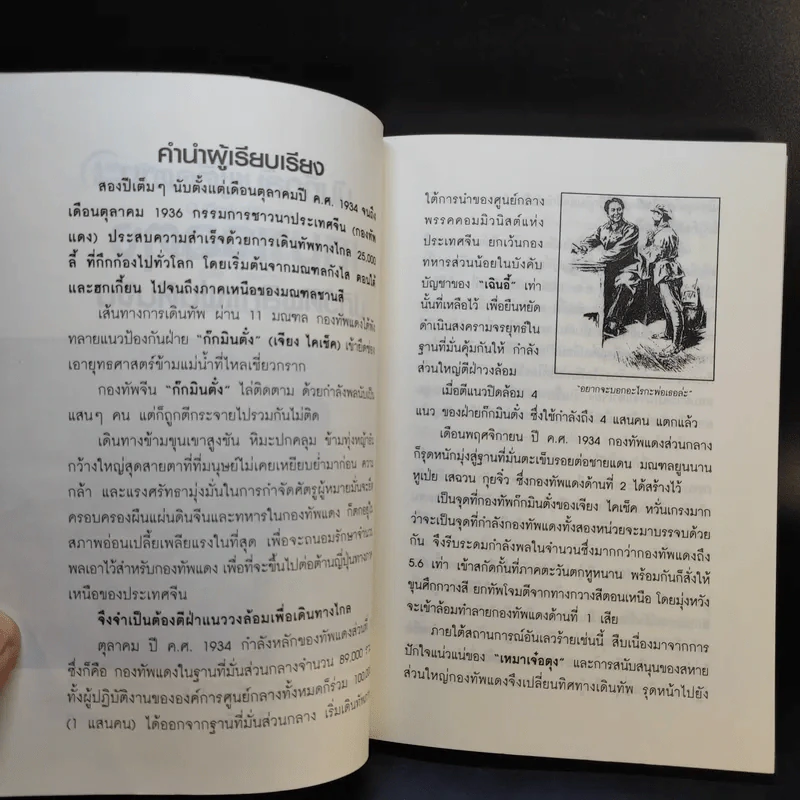 คำนำผู้เรียบเรียง
สองปีเต็มๆ นับตั้งแต่เดือนตุลาคมปี ค.ศ. 1934 จนถึง
เดือนตุลาคม 1936 กรรมการชาวนาประเทศจีน (กองทัพ
แดง) ประสบความสำเร็จด้วยการเดินทัพทางไกล 25,000
ลี้ ที่กึกก้องไปทั่วโลก โดยเริ่มต้นจากมณฑลกังไส ตอนใต้
และฮกเกี้ยน ไปจนถึงภาคเหนือของมณฑลชานสี
เส้นทางการเดินทัพ ผ่าน 11 มณฑล กองทัพแดงได้
ทลายแนวป้องกันฝ่าย "ก๊กมินตั๋ง" (เจียง ไคเช็ค) เข้ายึดช่อง
เอายุทธศาสตร์ข้ามแม่น้ำที่ไหลเชี่ยวกราก
กองทัพจีน "ก๊กมินตั๋ง" ไล่ติดตาม ด้วยกำลังพลนับเป็น
แสนๆ คน แต่ก็ถูกตีกระจายไปรวมกันไม่ติด
เดินทางข้ามขุนเขาสูงชัน หิมะปกคลุม ข้ามทุ่งหญ้าอัน
กว้างใหญ่สุดสายตาที่ที่มนุษย์ไม่เคยเหยียบย่ำมาก่อน ความ
กล้า และแรงศรัทธามุ่งมั่นในการกำจัดศัตรูผู้หมายมั่นจะยึด
ครอบครองผืนแผ่นดินจีนและทหารในกองทัพแดง ก็ตกอยู่ใน
สภาพอ่อนเปลี้ยเพลียแรงในที่สุด เพื่อจะถนอมรักษาจำนวน
พลเอาไว้สำหรับกองทัพแดง เพื่อที่จะขึ้นไปต่อต้านญี่ปุ่นทางภาค
เหนือของประเทศจีน
จึงจำเป็นต้องตีฝ่าแนววงล้อมเพื่อเดินทางไกล
ตุลาคม ปี ค.ศ. 1934 กำลังหลักของกองทัพแดงส่วนที่
ซึ่งก็คือ กองทัพแดงในฐานที่มั่นส่วนกลางจำนวน 89,000
ทั้งผู้ปฏิบัติงานขององค์การศูนย์กลางทั้งหมดก็ร่วม
(1 แสนคน) ได้ออกจากฐานที่มั่นส่วนกลาง เริ่มเดินทัพ
ใต้การนำของศูนย์กลาง
พรรคคอมมิวนิสต์แห่ง
ประเทศจีน ยกเว้นกอง
ทหารส่วนน้อยในบังคับ
บัญชาของ "เฉินอี้" เท่า
นั้นที่เหลือไว้ เพื่อยืนหยัด
ดำเนินสงครามจรยุทธ์ใน
ฐานที่มั่นคุ้มกันให้ กำลัง
ส่วนใหญ่ตีฝ่าวงล้อม
"อยากจะบอกอะไรกะพ่อเธอล่ะ"
เมื่อตีแนวปิดล้อม 4
แนว ของฝ่ายก๊กมินตั๋ง ซึ่งใช้กำลังถึง 4 แสนคน แตกแล้ว
เดือนพฤศจิกายน ปี ค.ศ. 1934 กองทัพแดงส่วนกลาง
ก็รุดหนักมุ่งสู่ฐานที่มั่นตะเข็บรอยต่อชายแดน มณฑลยูนนาน
หูเป่ย เสฉวน กุยจิ๋ว ซึ่งกองทัพแดงด้านที่ 2 ได้สร้างไว้
เป็นจุดที่กองทัพก๊กมินตั๋งของเจียง ไคเช็ค หวั่นเกรงมาก
ว่าจะเป็นจุดที่กำลังกองทัพแดงทั้งสองหน่วยจะมาบรรจบด้วย
กัน จึงรีบระดมกำลังพลในจำนวนซึ่งมากกว่ากองทัพแดงถึง
5.6 เท่า เข้าสกัดกั้นที่ภาคตะวันตกหูหนาน พร้อมกันก็สั่งให้
ขุนศึกกวางสี ยกทัพโจมตีจากทางกวางสีตอนเหนือ โดยมุ่งหวัง
จะเข้าล้อมทำลายกองทัพแดงด้านที่ 1 เสีย
ภายใต้สถานการณ์อันเลวร้ายเช่นนี้ สืบเนื่องมาจากการ
ปักใจแน่วแน่ของ "เหมาเจ๋อตุง" และการสนับสนุนของสหาย
ส่วนใหญ่กองทัพแดงจึงเปลี่ยนทิศทางเดินทัพ รุดหน้าไปยัง